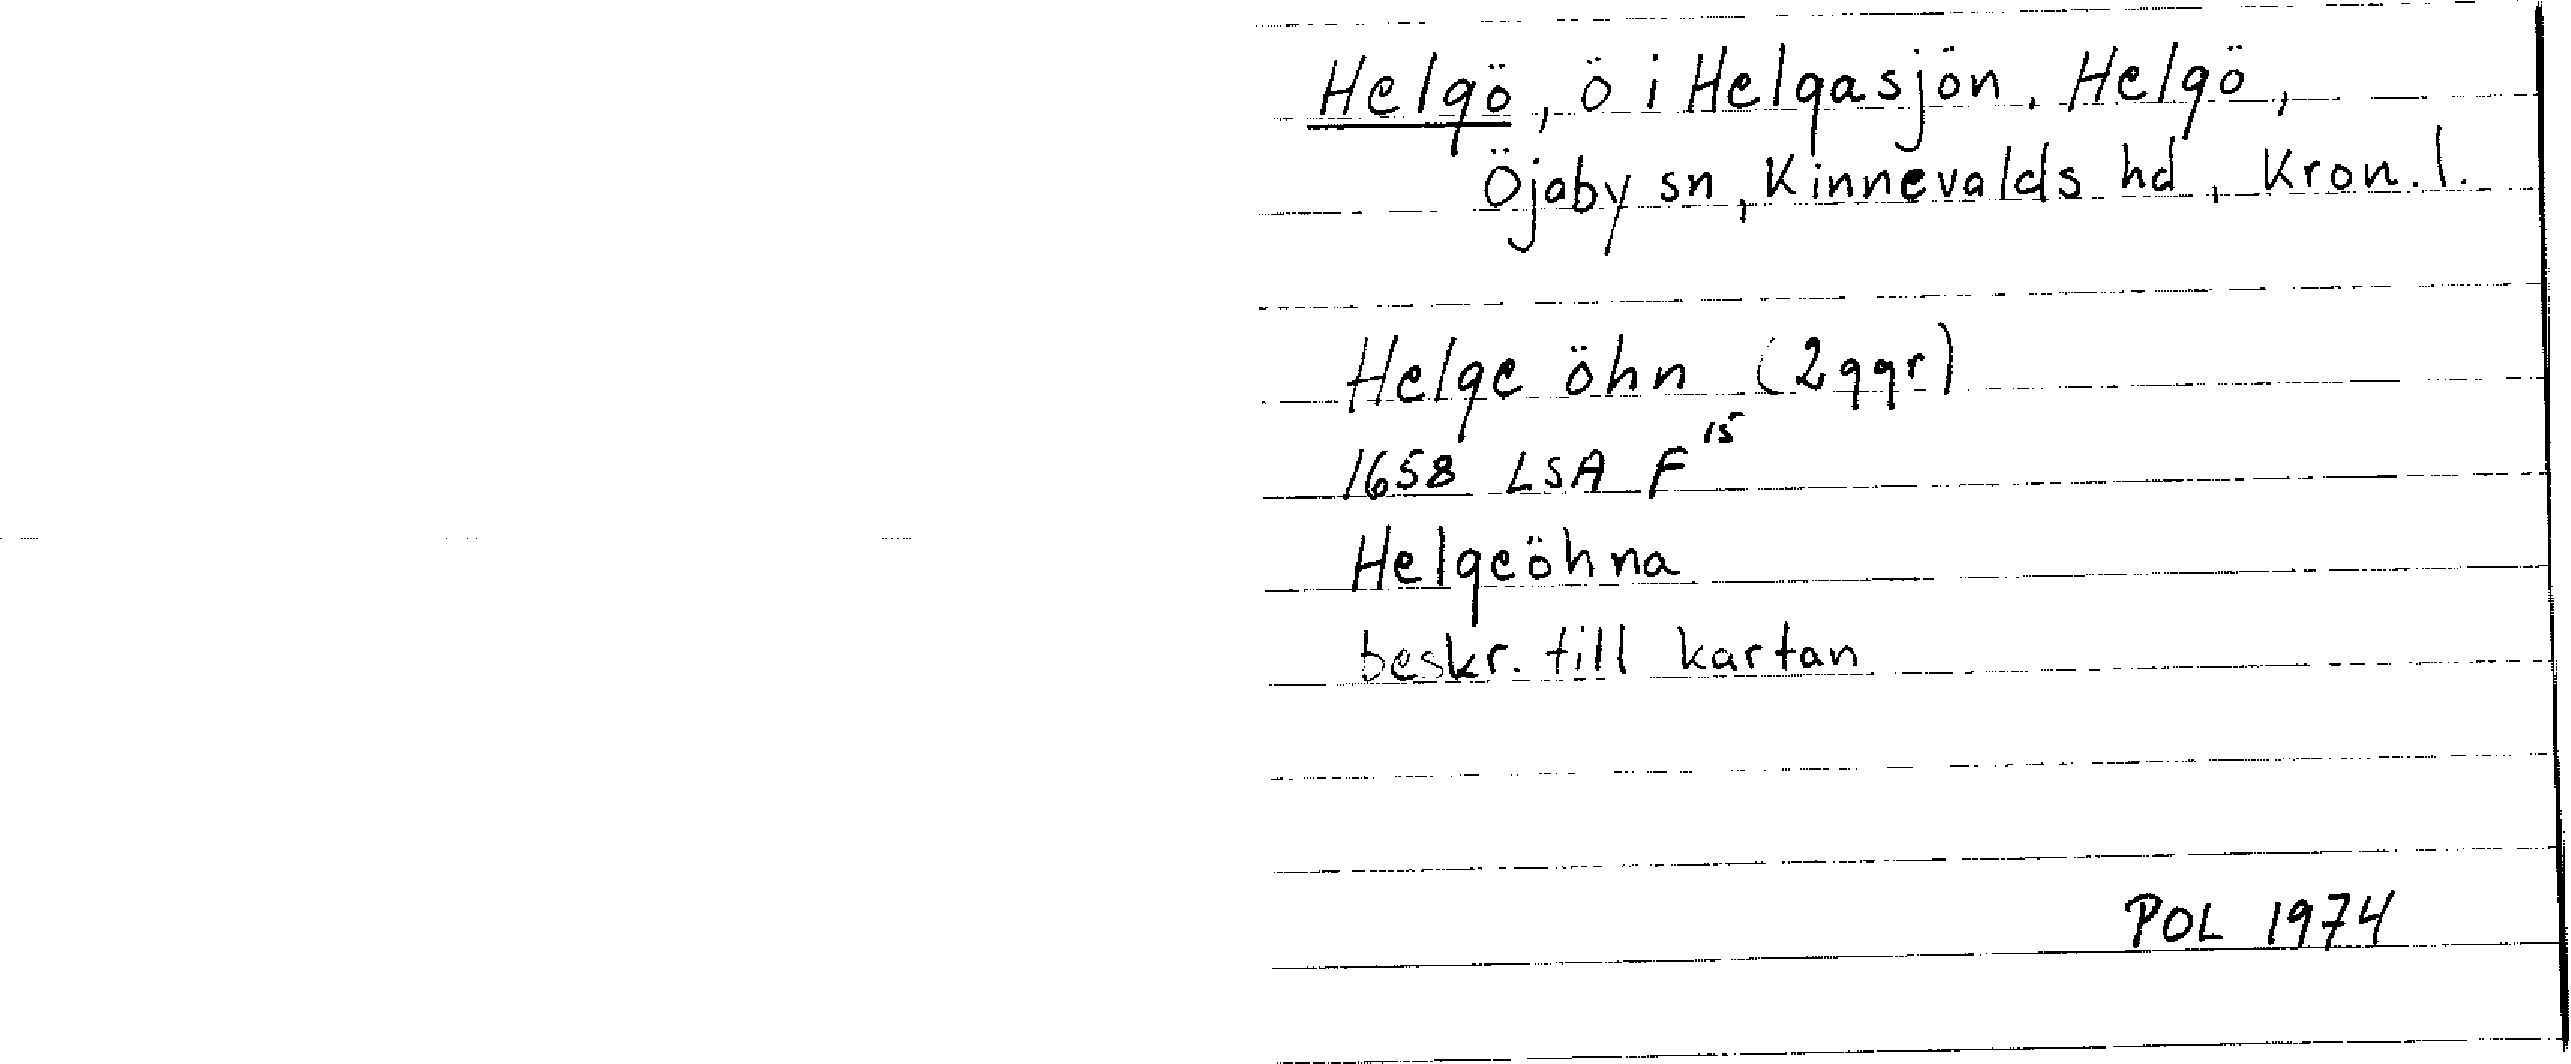 Helgö, ö i Helgasjön, Helgö,
Öjaby sn, Kinnevalds hd, Kron. l.
Helge öhn (2ggr)
1658 LSA F¹⁵
Helgeöhna
beskr. till kartan
POL 1974